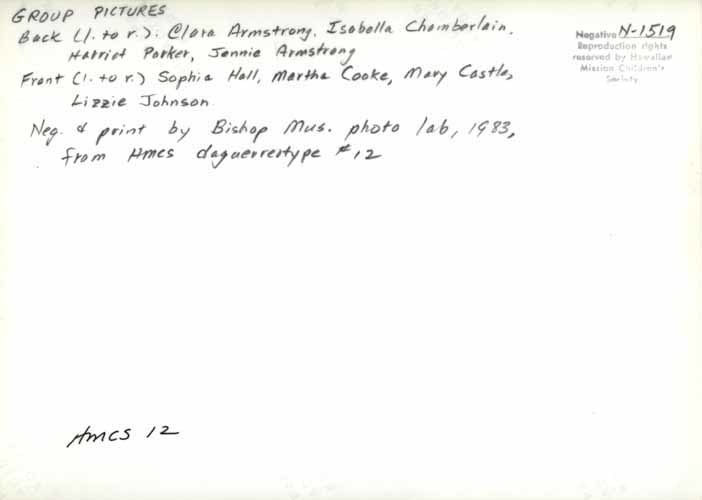 GROUP PICTURES
Back (l. to r.): Clara Armstrong, Isabella Chamberlain,
Harriet Parker, Jennie Armstrong
Front (l. to r.) Sophia Hall, Martha Cooke, Mary Castle,
Lizzie Johnson
Neg. & print by Bishop Mus. photo lab, 1983,
from HMCS daguerreotype #12
Negative N-1519
Reproduction rights
reserved by Hawaiian
Mission Children's
Society
HMCS 12